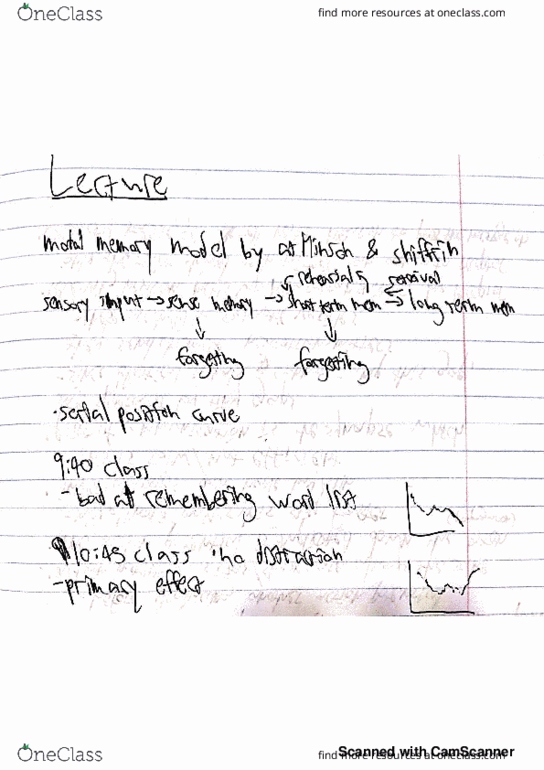 OneClass
find more resources at oneclass.com
Lecture
motal memory model by atMinson & shiffrin
rehersal
sensory input → sense memory → short term mem → long term mem
forgetting forgetting
·serial position curve
9:40 class
-bad at remembering word list
10:45 class no distraction
-primary effect
OneClass
find more resources at oneclass.com
Scanned with CamScanner